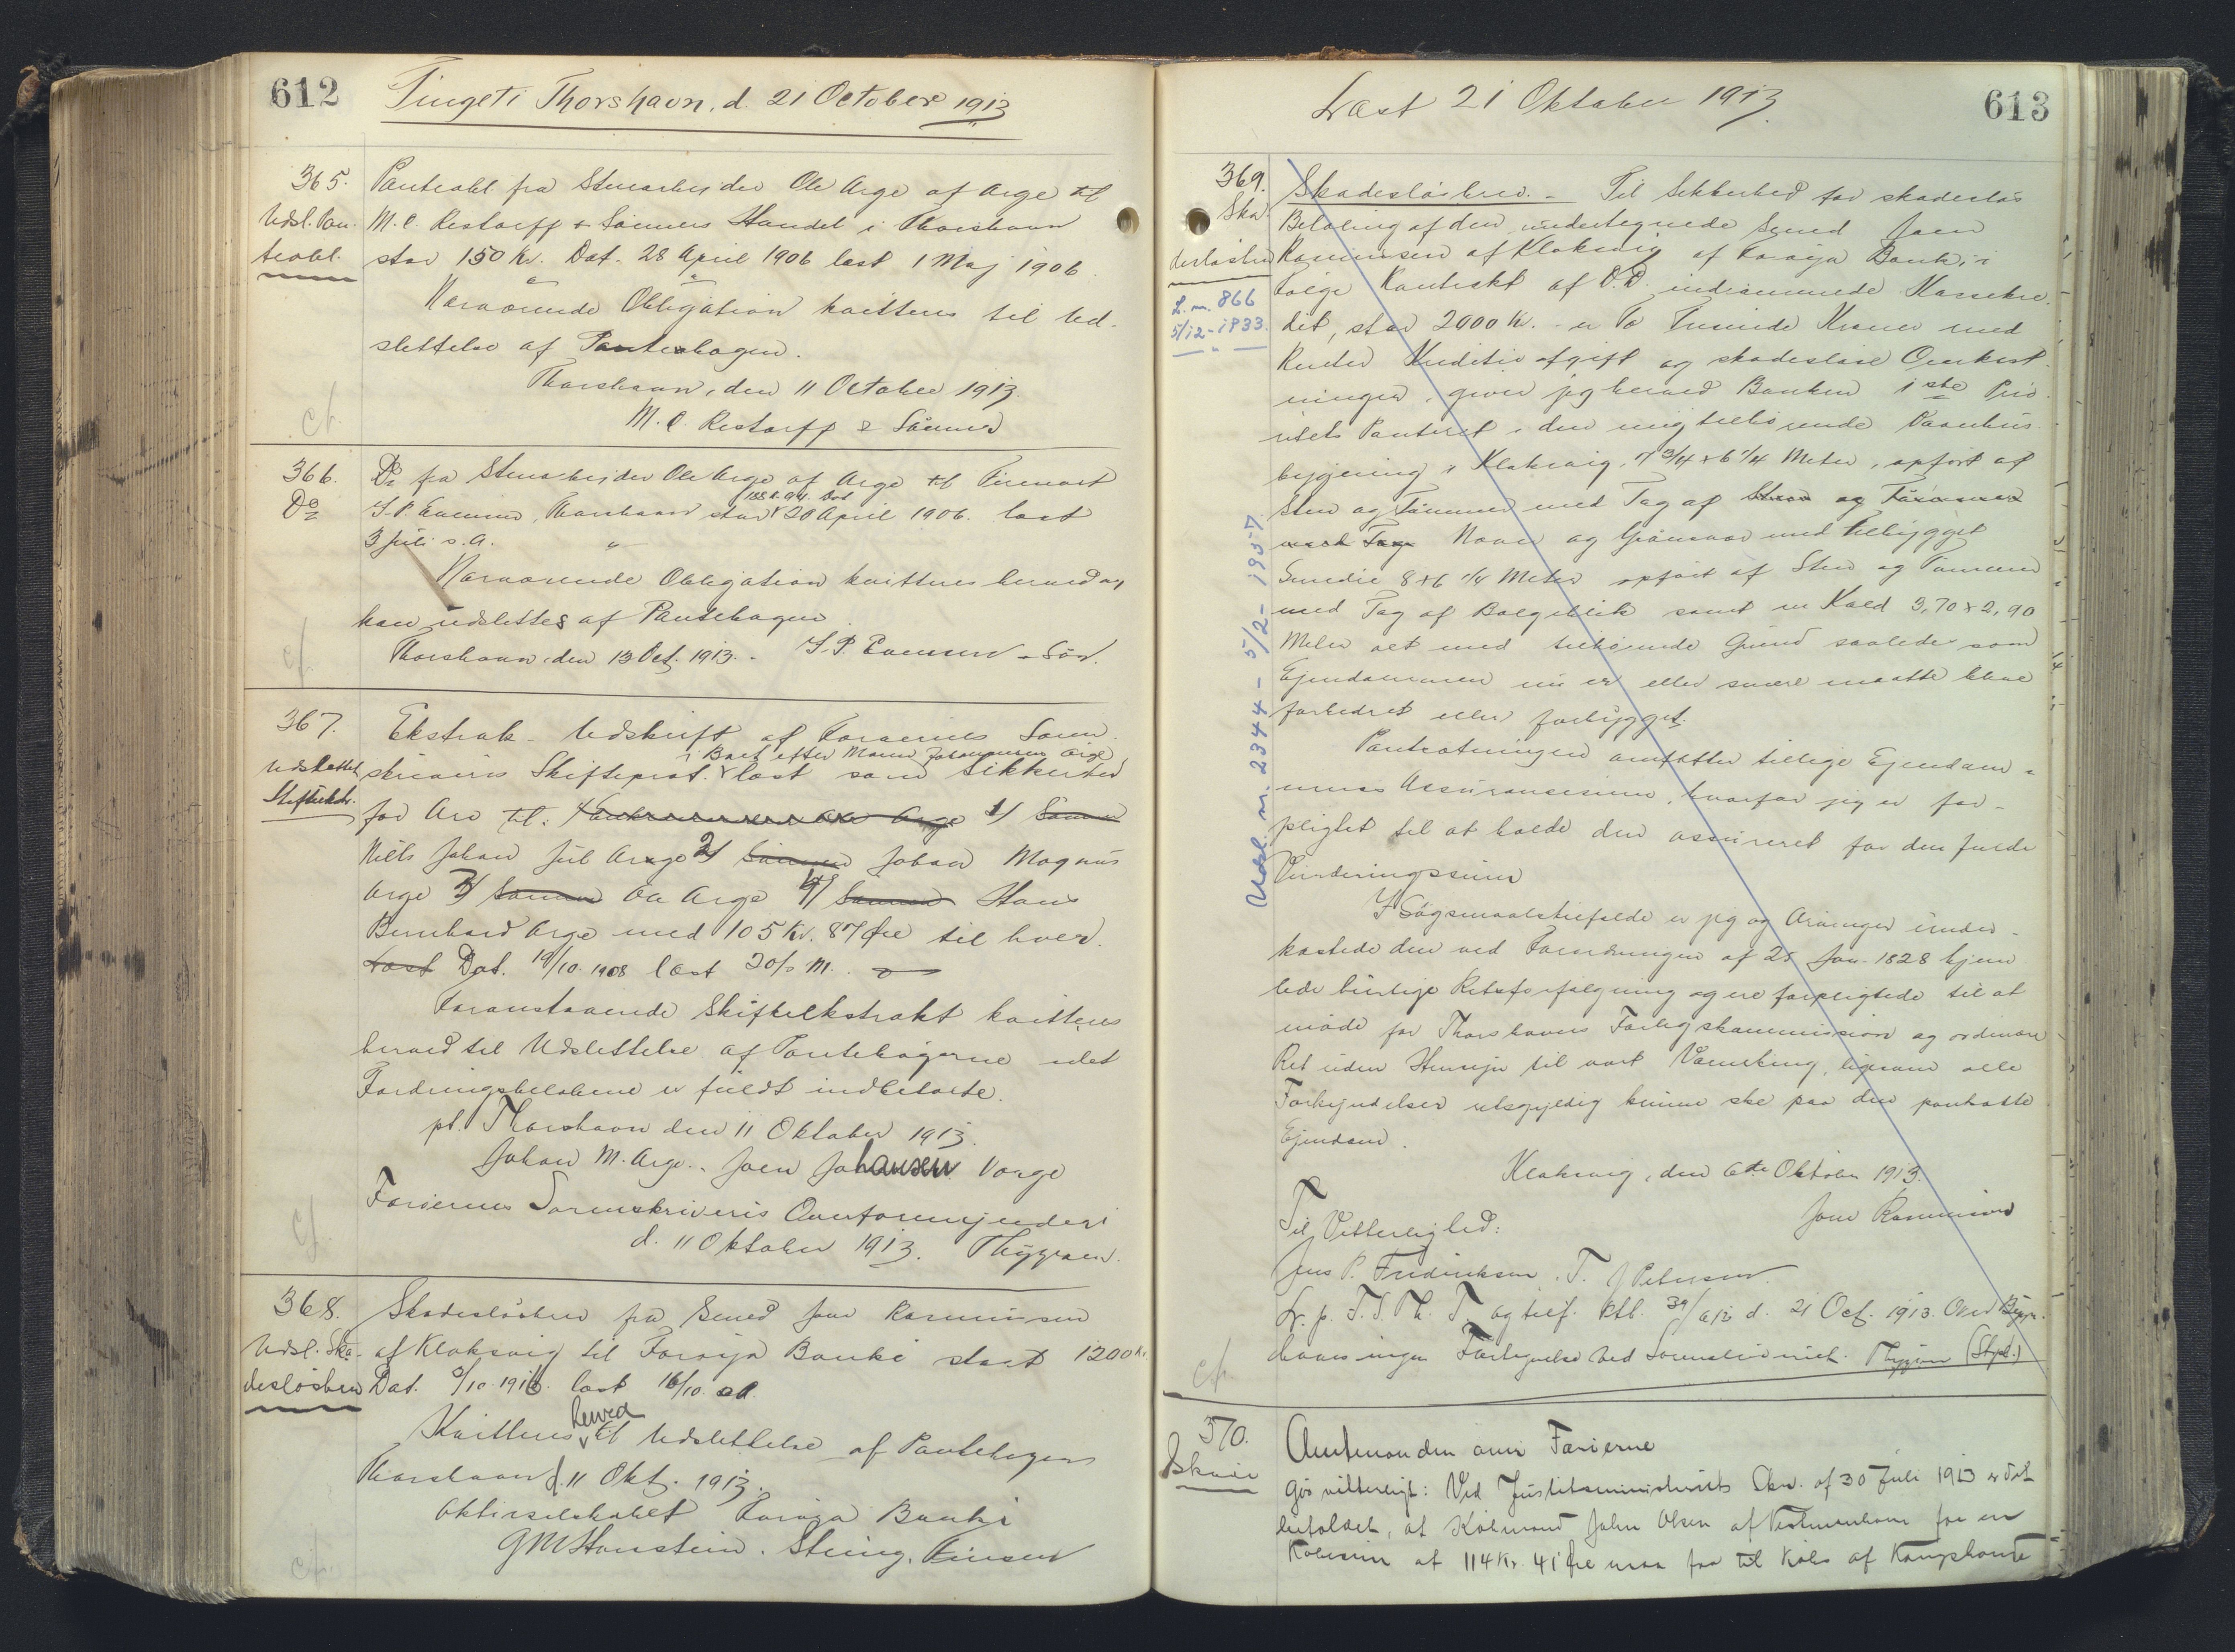 612
Tinget i Thorshavn, d. 21 October 1913
365.
Udsl. Pan-
teobl.
Panteobl. fra Stenarbejder Ole Arge af Arge til
M. C. Restorff & Sönners Handel i Thorshavn
stor 150 Kr. Dat. 28 April 1906 læst 1 Maj 1906.
Nærværende Obligation kvitteres til Ud-
slettelse af Pantebogen.
Thorshavn, den 11 October 1913.
M. C. Restorff & Sönner
cf.
366.
Do
Do fra Stenarbejder Ole Arge af Arge til Firmaet
J. P. Evensen, Thorshavn stor 20 April 1906. læst
3 Juli s. A.
Nærværende Obligation kvitteres herved og
kan udslettes af Pantebogen
Thorshavn, den 13 Oct. 1913. J. P. Evensen - Sön.
cf.
367.
Udslettet
Skifteekstr.
Ekstrak-Udskrift af Færøernes Soren-
i Boet efter Johannesen Arge
skriveris Skifteprot. læst som Sikkerhed
for Arv til: 1/ Sönnen
Niels Johan Jul Arge 2/ Sönnen Johan Magnus
Arge 3/ Sönnen Ole Arge 4/ Sönnen Hans
Bernhard Arge med 105 Kr. 87 Øre til hver.
Læst Dat. 19/10 1908 læst 20/s. M.
Foranstaaende Skifteekstrakt kvitteres
herved til Udslettelse af Pantebögerne idet
Fordringsbeløbene er fuldt indbetalte.
pt. Thorshavn den 11 Oktober 1913.
Johan M. Arge. Joen Johansen Vaage
Færøernes Sorenskriveris Overformynderi
d. 11 Oktober 1913. Thygesen.
cf.
368.
Udsl. Ska-
deslösbrev
Skadeslösbrev fra Smed Joen Rasmussen
af Klaksvig til Foroya Banki stort 1200 Kr.
Dat. /10 1912 læst 16/10 s. A.
Kvitteres herved til Udslettelse af Pantebogen
Thorshavn d. 11 Okt. 1913.
Aktieselskabet Foroya Banki
cf.
Læst 21 Oktober 1913.
613
369.
Ska-
deslösbrev
L. nr. 866
5/12-1933.
Udsl. nr. 2344 - 5/2-1957
Skadeslösbrev. - Til Sikkerhed for skadeslös
Betaling af den undertegnede Smed Joen
Rasmussen af Klaksvig af Foroya Banki i
Fölge Kontrakt af D. D. indrömmede Kassekre-
dit, stor 2000 Kr. - er To Tusinde Kroner med
Renter Kreditivafgift og skadeslöse Omkost-
ninger, giver jeg herved Banken 1ste Prio-
ritets Panteret i den mig tilhörende Vaanhus-
bygning i Klaksvig, 7 3/4 x 6 1/4 Meter, opfört af
Sten og Tömmer med Tag af Sten og Tömmer
med Tag Næver og Grönsvær med tilbygget
Smedie 8 x 6 1/4 Meter opfört af Sten og Tömmer
med Tag af Bölgeblik samt en Kæld 3,70 x 2,90
Meter alt med tilhörende Grund saaledes som
Ejendommen nu er eller senere maatte blive
forbedret eller forbygget.
Pantsætningen omfatter tillige Ejendom-
mens Assurancesum, hvorfor jeg er for-
pligtet til at holde den assureret for den fulde
Vurderingssum
I Sögsmaalstilfælde er jeg og Arvinger under-
kastede den ved Forordningen af 25 Jan. 1828 hjem-
lede hurtige Retsforfölgning og ere forpligtede til at
möde for Thorshavns Forligskommission og ordinære
Ret uden Hensyn til vort Værneting, ligesom alle
Forkyndelser retsgyldig kunne ske paa den pantsatte
Ejendom.
Klaksvig, den 6te Oktober 1913.
Joen Rasmussen
Til Vitterlighed:
Jens P. Fredriksen. T. J Petersen.
L. p. T. i Th. T. og tilf. Ktl. d. 21 Oct. 1913. Over Bygn.
haves ingen Fæstegivelse ved Sorenskriveriet. Thygesen (Stpl.)
cf.
370.
Sköde
Amtmanden over Færøerne
gör vitterligt: Ved Justitsministeriets Skr. af 30 Juli 1913 er det
befalet, at Köbmand John Olsen af Vestmanhavn for en
Köbesum af 114 Kr. 41 Øre maa faa til Köbs af Kongsbonde